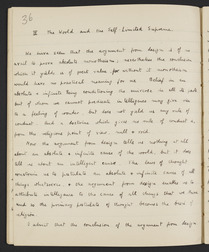 36
II The World and the Self Limited Supreme.
We have seen that the argument from design is of no
avail to prove absolute monotheism; nevertheless the conclusion
where it yields is of great value for without it monotheism
would have no practical meaning for me. Belief in an
absolute & infinite being conditioning the universe in all its
but of whom we cannot predicate intelligence may give rise
to a feeling of wonder but does not yield us any rule of
conduct. And a doctrine which gives no rule of conduct is,
from the religious point of view, null & void.
Now the argument from design tells us nothing at all
about an absolute & infinite cause of the world, but it does
tell us about an intelligent cause. The laws of thought
constrain us to postulate an absolute & infinite cause of all
things whatsoever & the argument from design enables us to
attribute intelligence to the cause of all things that we know
and so the primary postulate of thought becomes the basis of
religion.
I admit that the conclusion of the argument from design